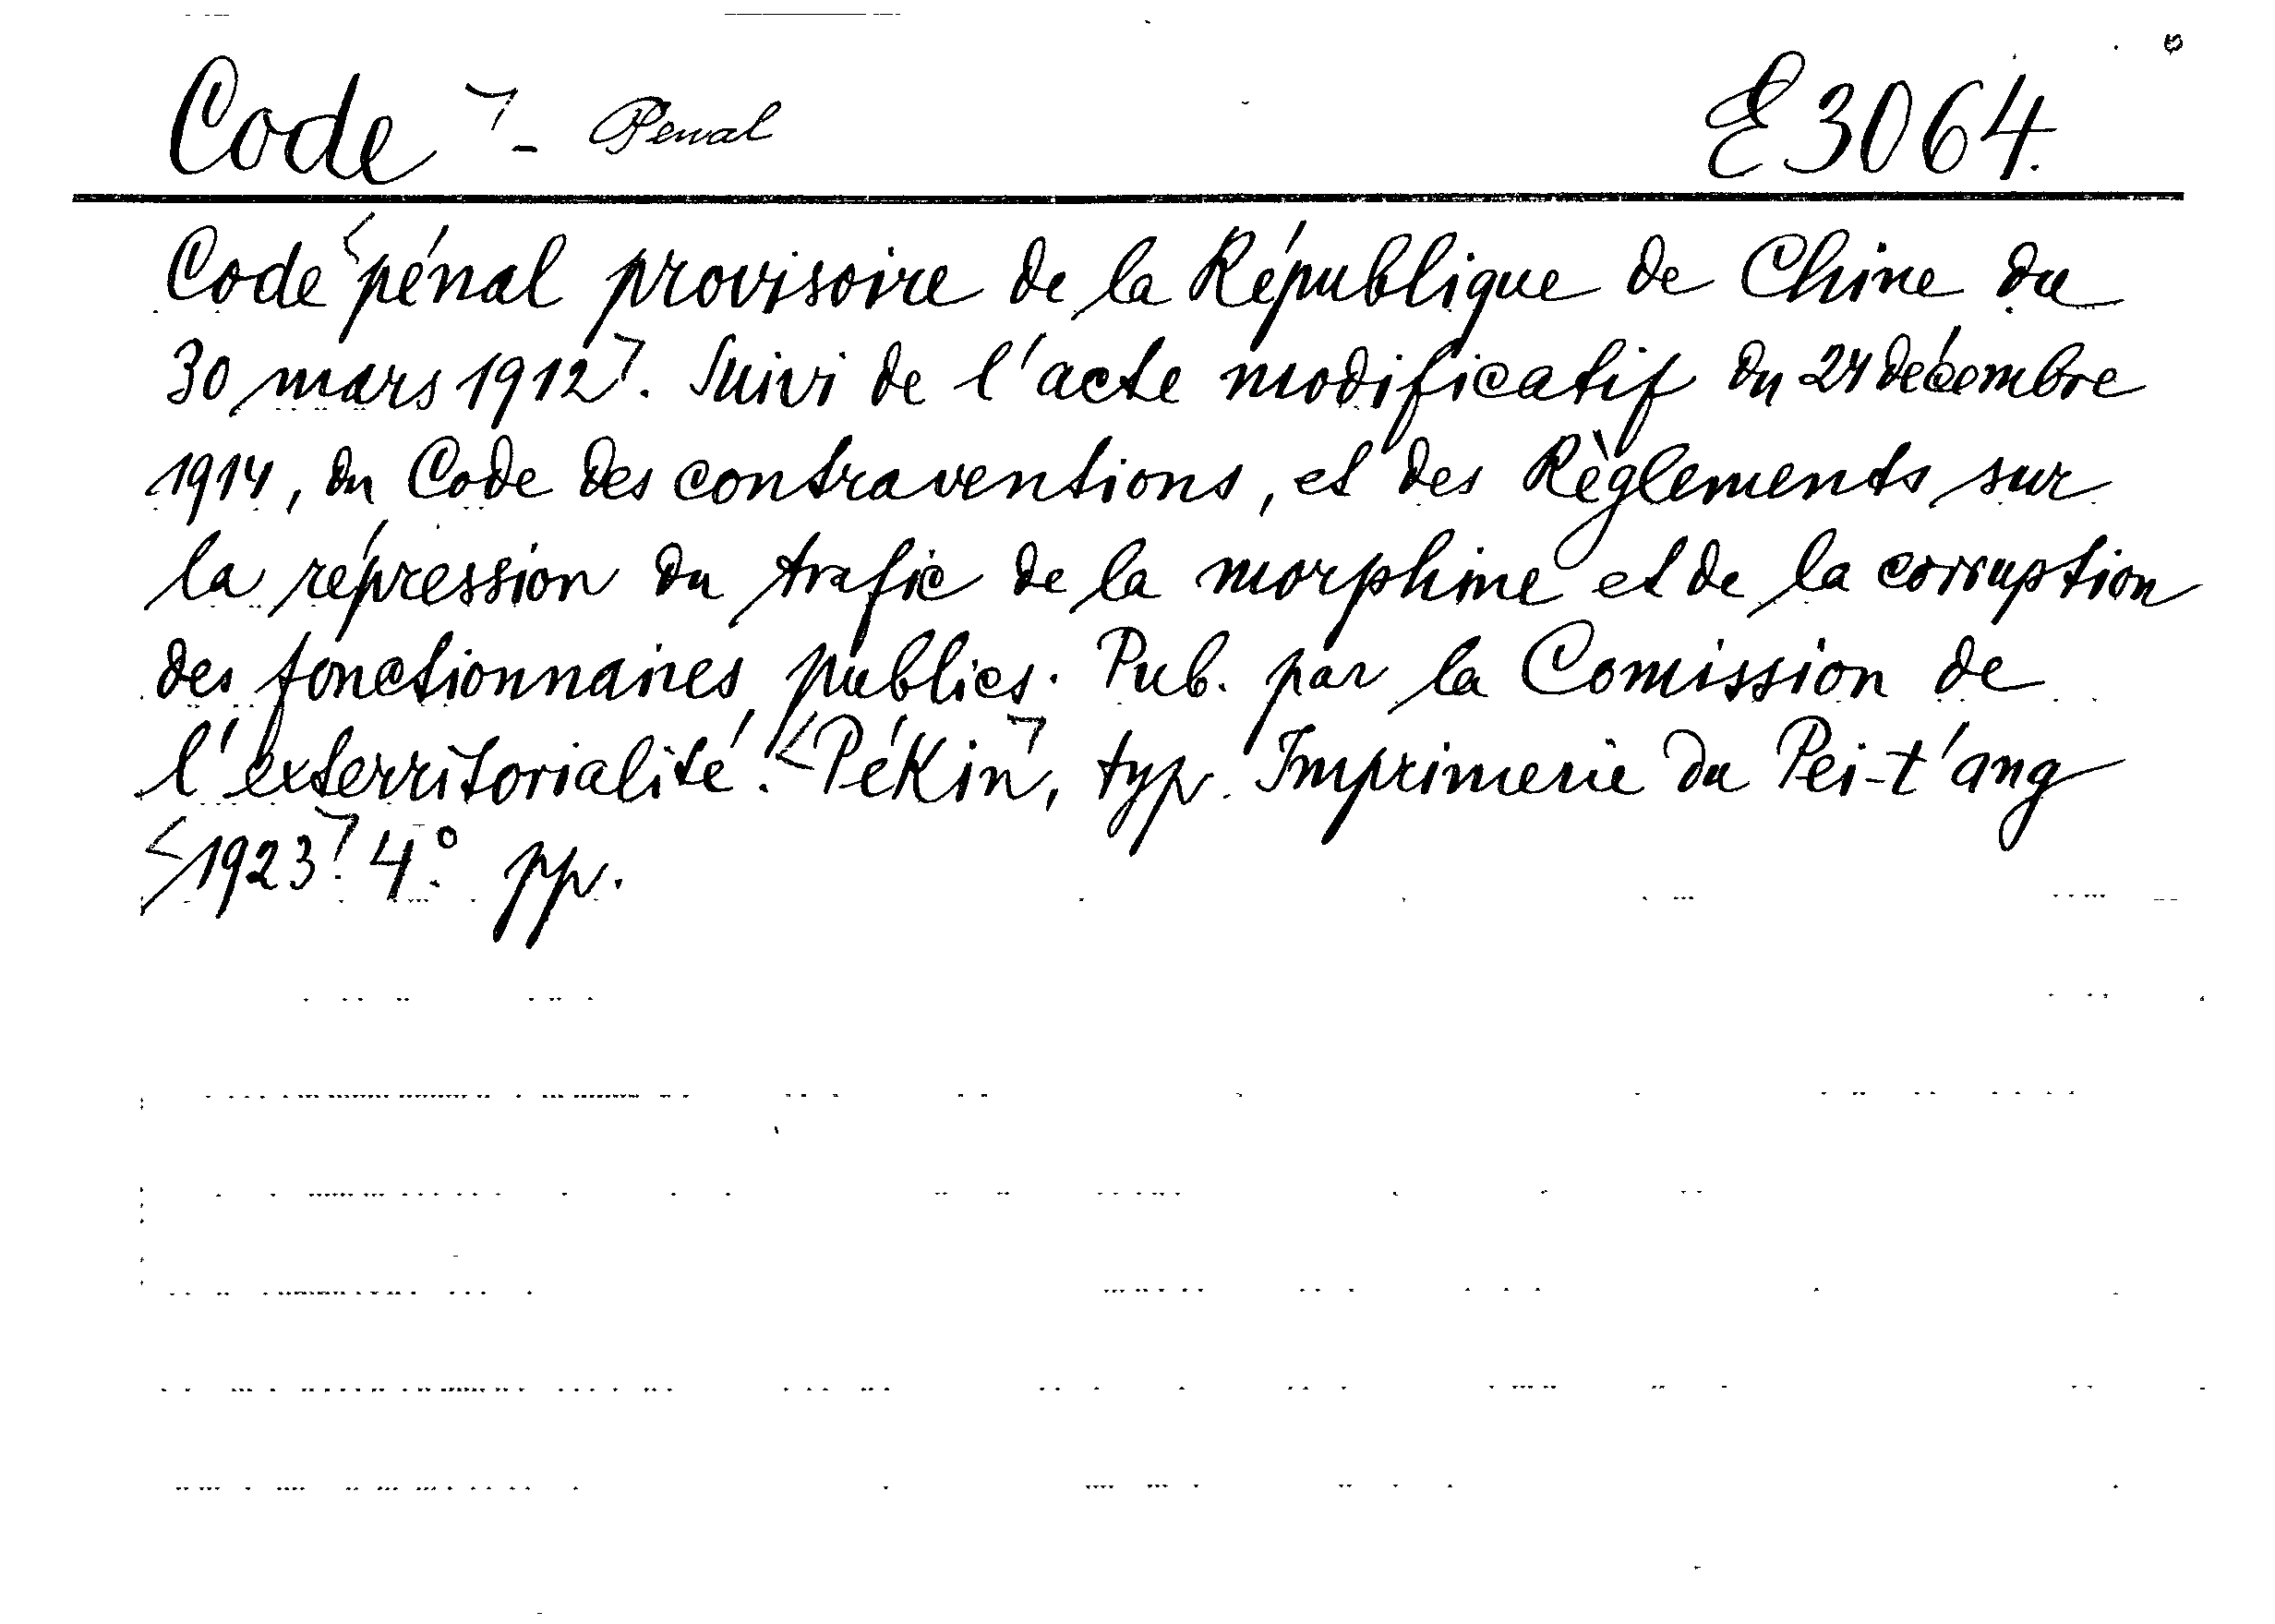 Code - Penal E 3064.
Code pénal provisoire de la République de Chine du
30 mars 1912. Suivi de l'acte modificatif du 24 décembre
1914, du Code des contraventions, et des Règlements sur
la répression du trafic de la morphine et de la corruption
des fonctionnaires publics. Pub. par la Comission de
l'exterritorialité. Pékin, typ. Imprimerie du Pei-t'ang
1923. 4º pp.